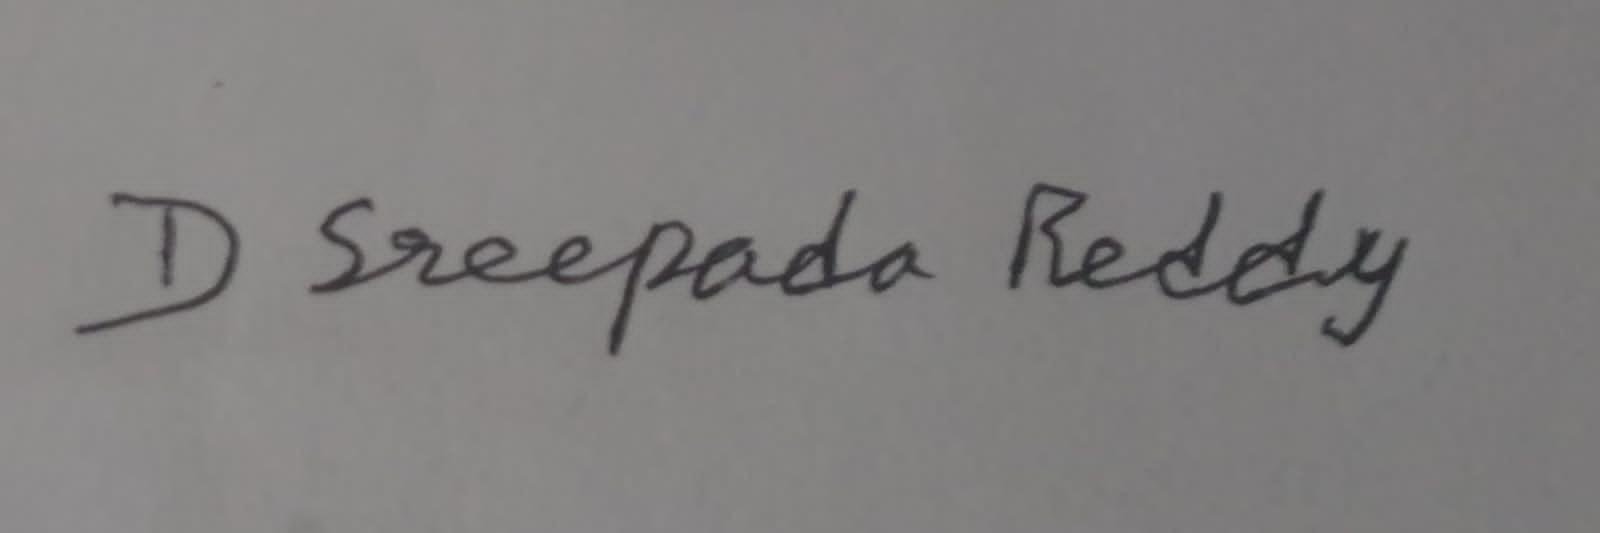 D Sreepada Reddy